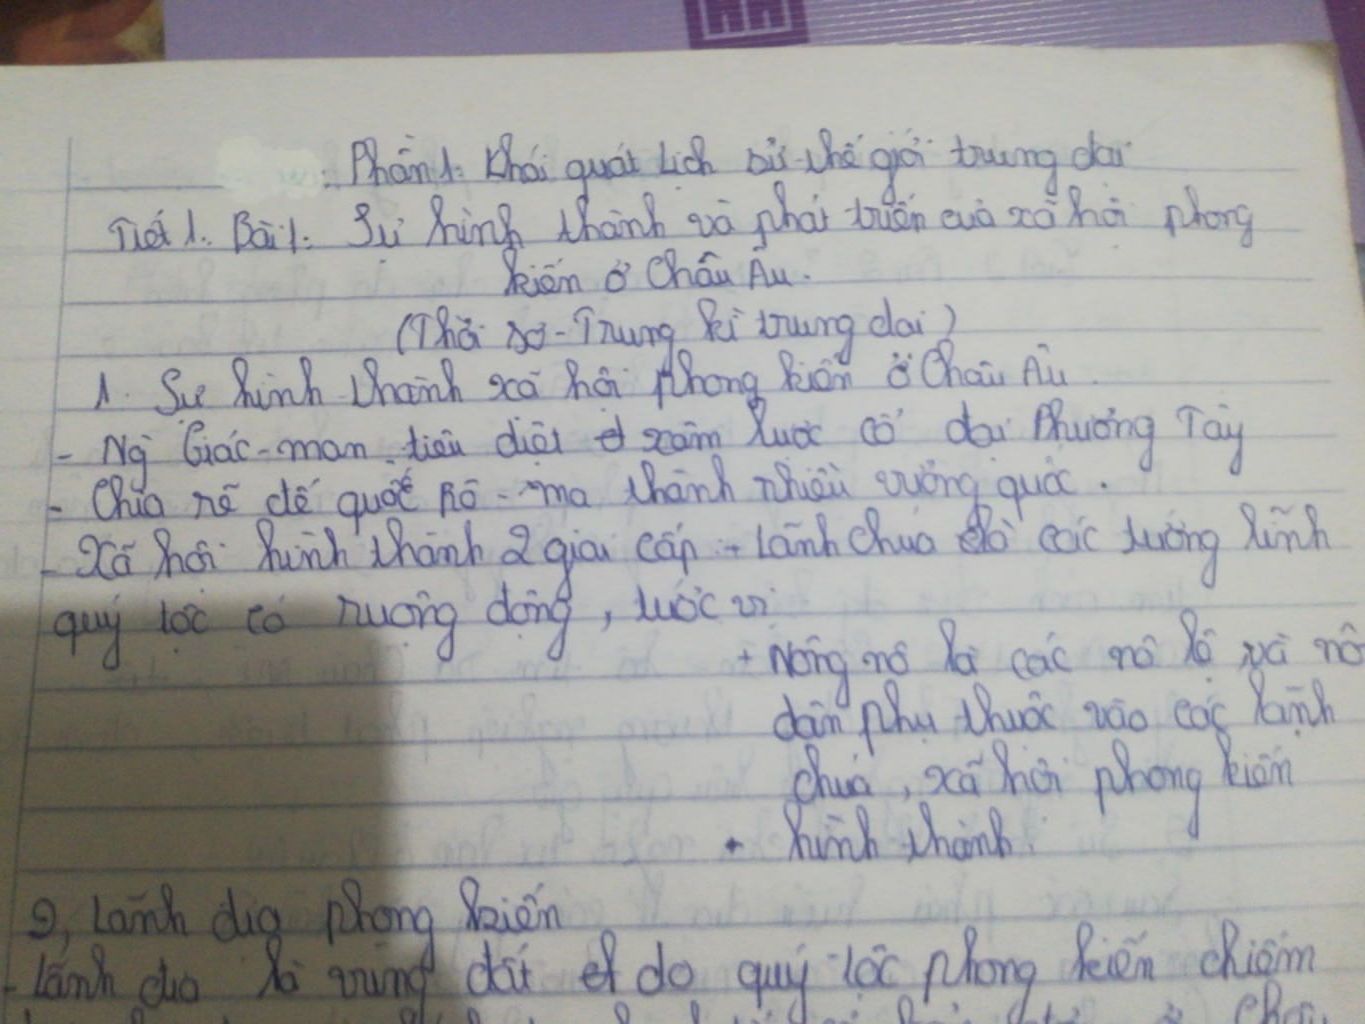 Phần 1: Khái quát Lịch sử thế giới trung đại
Tiết 1. Bài 1: Sự hình thành và phát triển của xã hội phong
kiến ở Châu Âu.
(Thời sơ - Trung kì trung đại)
1. Sự hình thành xã hội phong kiến ở Châu Âu.
- Ng Giéc-man tiêu diệt xâm lược cổ đại Phương Tây
- Chia rẽ đế quốc Rô-ma thành nhiều vương quốc.
- Xã hội hình thành 2 giai cấp + Lãnh chúa là các tướng lĩnh
quý tộc có ruộng đồng, tước vị
+ Nông nô là các nô lệ và nô
dân phụ thuộc vào các lãnh
chúa, xã hội phong kiến
hình thành.
2, Lãnh địa phong kiến
- Lãnh địa là vùng đất do quý tộc phong kiến chiếm